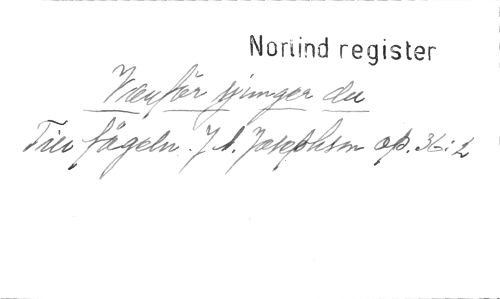 Norlind register
Varför sjunger du
Till fågeln. J. A. Josephson op. 36:2